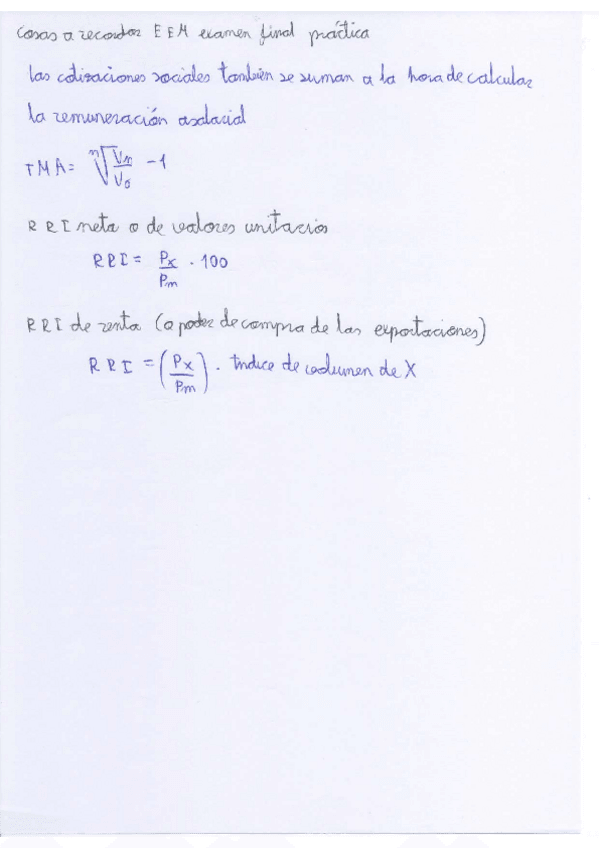 Cosas a recordar EEM examen final práctica
las cotizaciones sociales también se suman a la hora de calcular
la remuneración asalarial
TMA = ⁿ√(Vn/V0) - 1
RRI neta o de valores unitarios
RRI = Px/Pm · 100
RRI de renta (o poder de compra de las exportaciones)
RRI = (Px/Pm) · índice de volumen de X